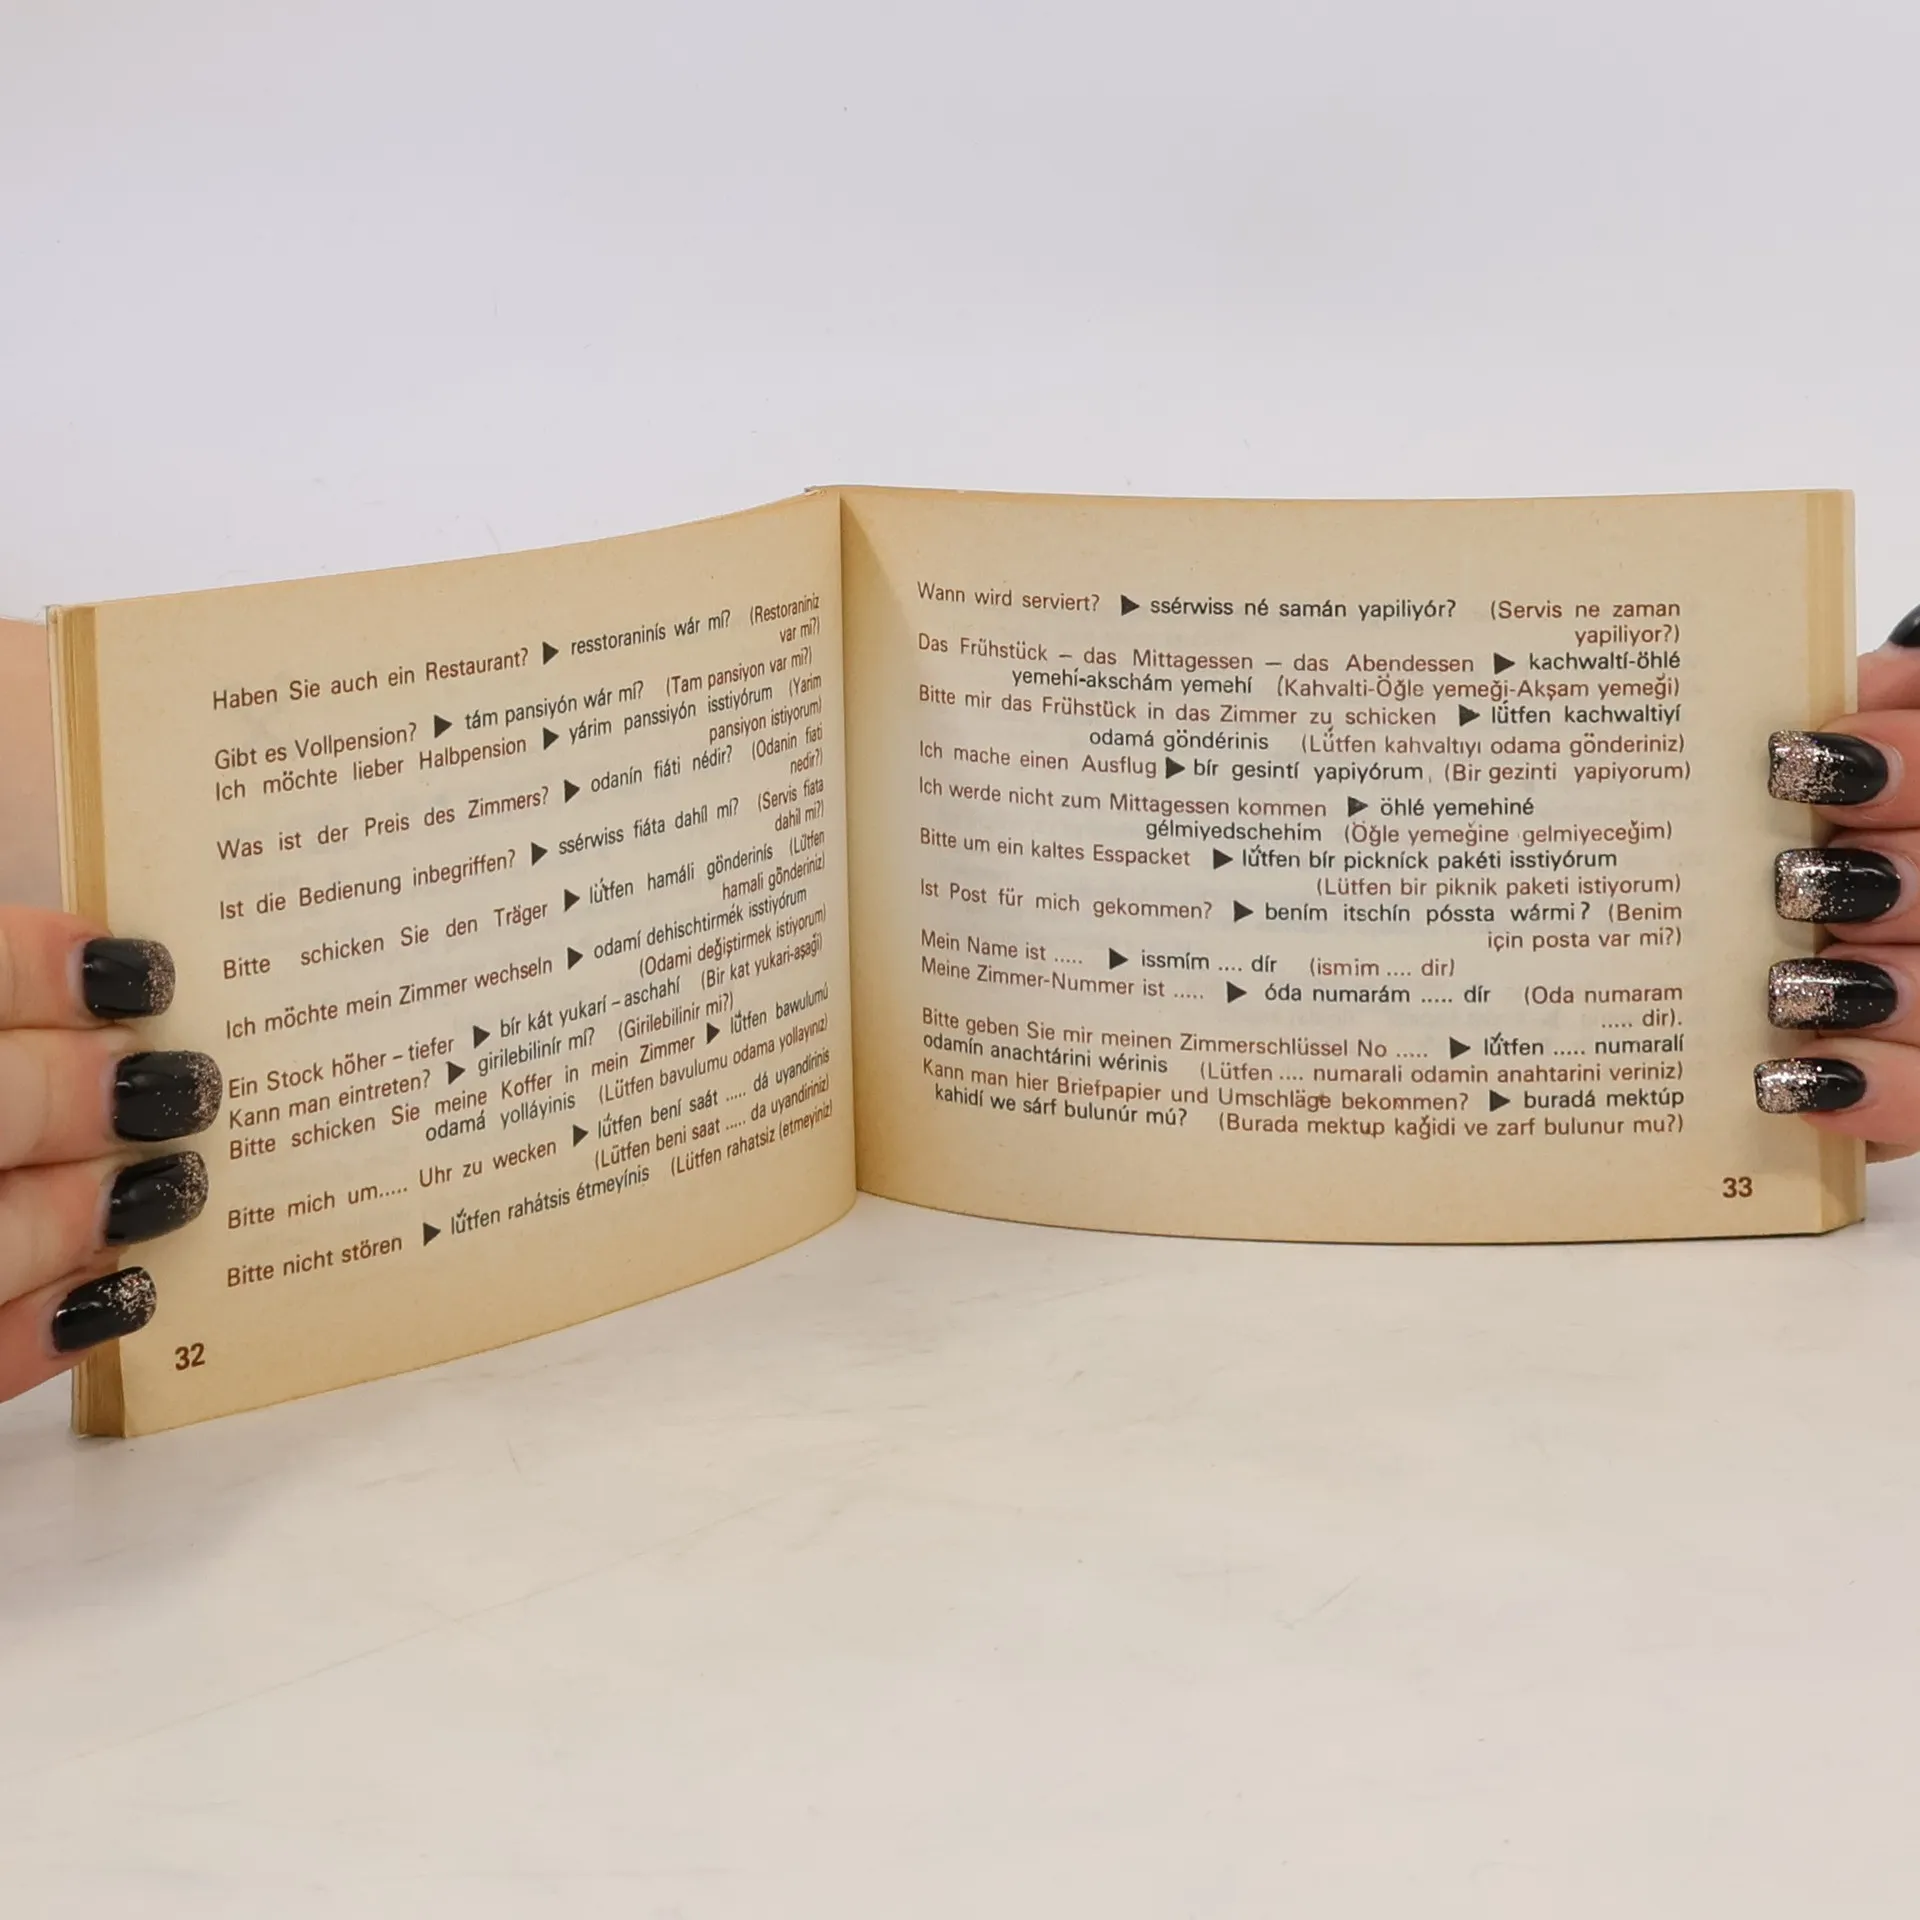 Haben Sie auch ein Restaurant? ▶ resstoraninís wár mí? (Restoraniniz
var mi?)
Gibt es Vollpension? ▶ tám pansiyón wár mí? (Tam pansiyon var mi?)
Ich möchte lieber Halbpension ▶ yárim panssiyón isstiyórum (Yarim
pansiyon istiyorum)
Was ist der Preis des Zimmers? ▶ odanín fiáti nédir? (Odanin fiati
nedir?)
Ist die Bedienung inbegriffen? ▶ ssérwiss fiáta dahíl mí? (Servis fiata
dahil mi?)
Bitte schicken Sie den Träger ▶ lǘtfen hamáli gönderinís (Lütfen
hamali gönderiniz)
Ich möchte mein Zimmer wechseln ▶ odamí dehischtirmék isstiyórum
(Odami değiştirmek istiyorum)
Ein Stock höher – tiefer ▶ bír kát yukarí – aschahí (Bir kat yukari-aşaği)
Kann man eintreten? ▶ girilebilinír mí? (Girilebilinir mi?)
Bitte schicken Sie meine Koffer in mein Zimmer ▶ lǘtfen bawulumú
odamá yolláyinis (Lütfen bavulumu odama yollayınız)
Bitte mich um..... Uhr zu wecken ▶ lǘtfen bení saát ..... dá uyandírinis
(Lütfen beni saat ..... da uyandiriniz)
Bitte nicht stören ▶ lǘtfen rahátsis étmeyínis (Lütfen rahatsiz (etmeyiniz)
32
Wann wird serviert? ▶ ssérwiss né samán yapiliyór? (Servis ne zaman
yapiliyor?)
Das Frühstück – das Mittagessen – das Abendessen ▶ kachwaltí-öhlé
yemehí-akschám yemehí (Kahvalti-Öğle yemeği-Akşam yemeği)
Bitte mir das Frühstück in das Zimmer zu schicken ▶ lǘtfen kachwaltiyí
odamá göndérinis (Lǘtfen kahvaltıyı odama gönderiniz)
Ich mache einen Ausflug ▶ bír gesintí yapiyórum (Bir gezinti yapiyorum)
Ich werde nicht zum Mittagessen kommen ▶ öhlé yemehiné
gélmiyedschehim (Öğle yemeğine gelmiyeceğim)
Bitte um ein kaltes Esspacket ▶ lǘtfen bír pickníck pakéti isstiyórum
(Lütfen bir piknik paketi istiyorum)
Ist Post für mich gekommen? ▶ bením itschín póssta wármi? (Benim
için posta var mi?)
Mein Name ist ..... ▶ issmím .... dír (ismim .... dir)
Meine Zimmer-Nummer ist ..... ▶ óda numarám ..... dír (Oda numaram
..... dir).
Bitte geben Sie mir meinen Zimmerschlüssel No ..... ▶ lǘtfen ..... numaralí
odamín anachtárini wérinis (Lütfen .... numarali odamin anahtarini veriniz)
Kann man hier Briefpapier und Umschläge bekommen? ▶ buradá mektúp
kahidí we sárf bulunúr mú? (Burada mektup kağidi ve zarf bulunur mu?)
33